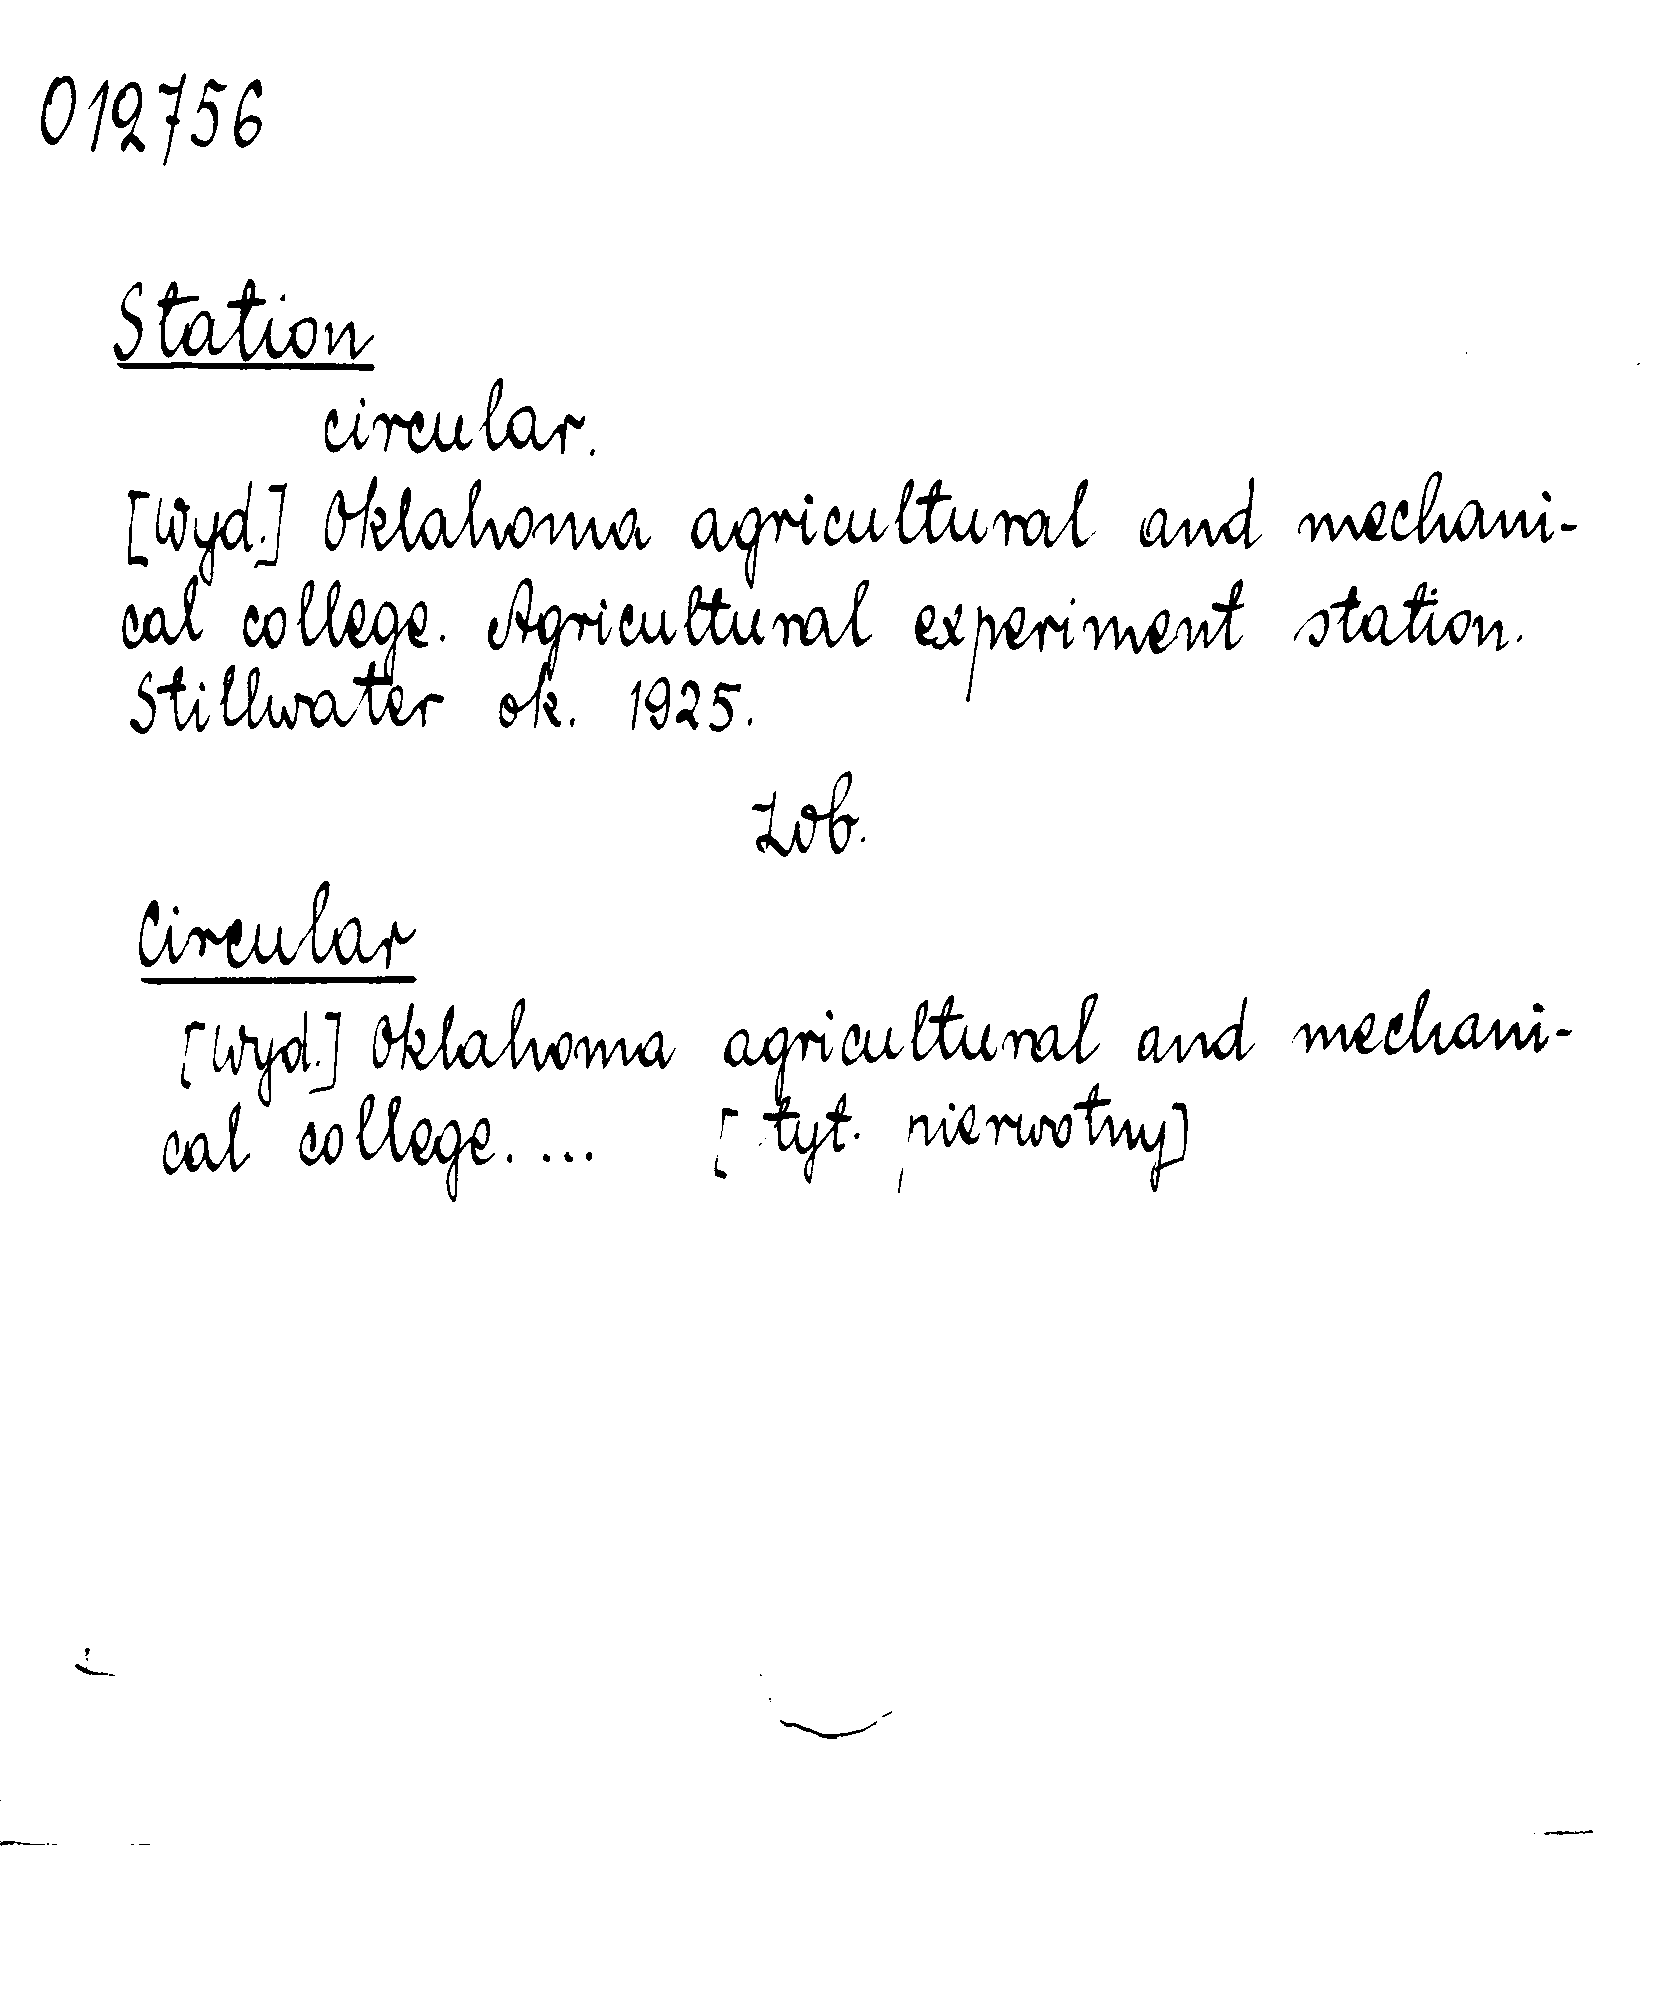 012756
Station
circular.
[Wyd.] Oklahoma agricultural and mechani-
cal college. Agricultural experiment station.
Stillwater ok. 1925.
Zob.
Circular
[Wyd.] Oklahoma agricultural and mechani-
cal college. ... [tyt. pierwotny]